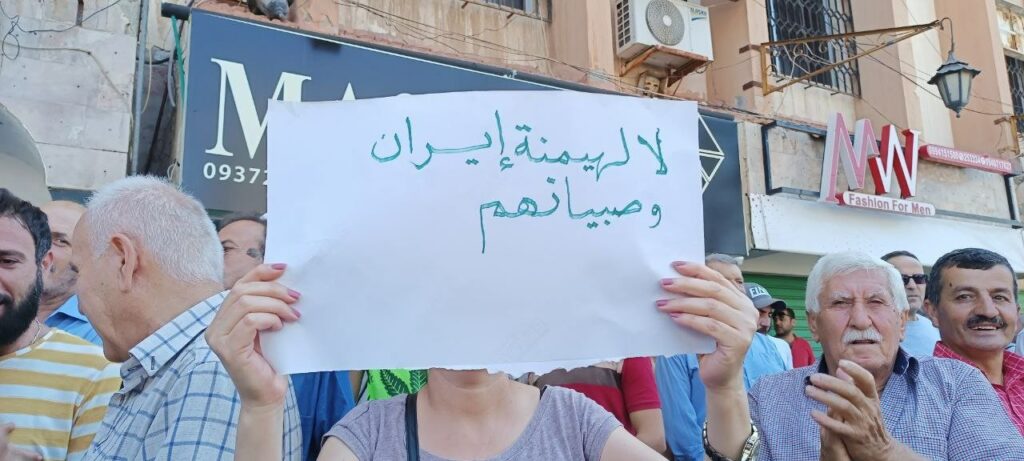 لا لهيمنة إيران
وصبيانهم
MA
0937
MW
Fashion For Men